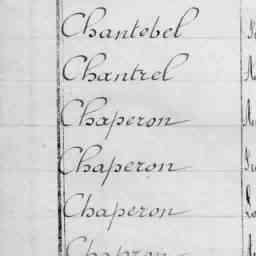 Chantobel
Chantrel
Chaperon
Chaperon
Chaperon
Chapron